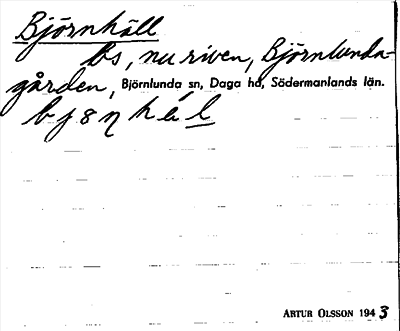 Björnhäll
bs, nu riven, Björnlunda-
gården, Björnlunda sn, Daga hd, Södermanlands län.
ARTUR OLSSON 1943